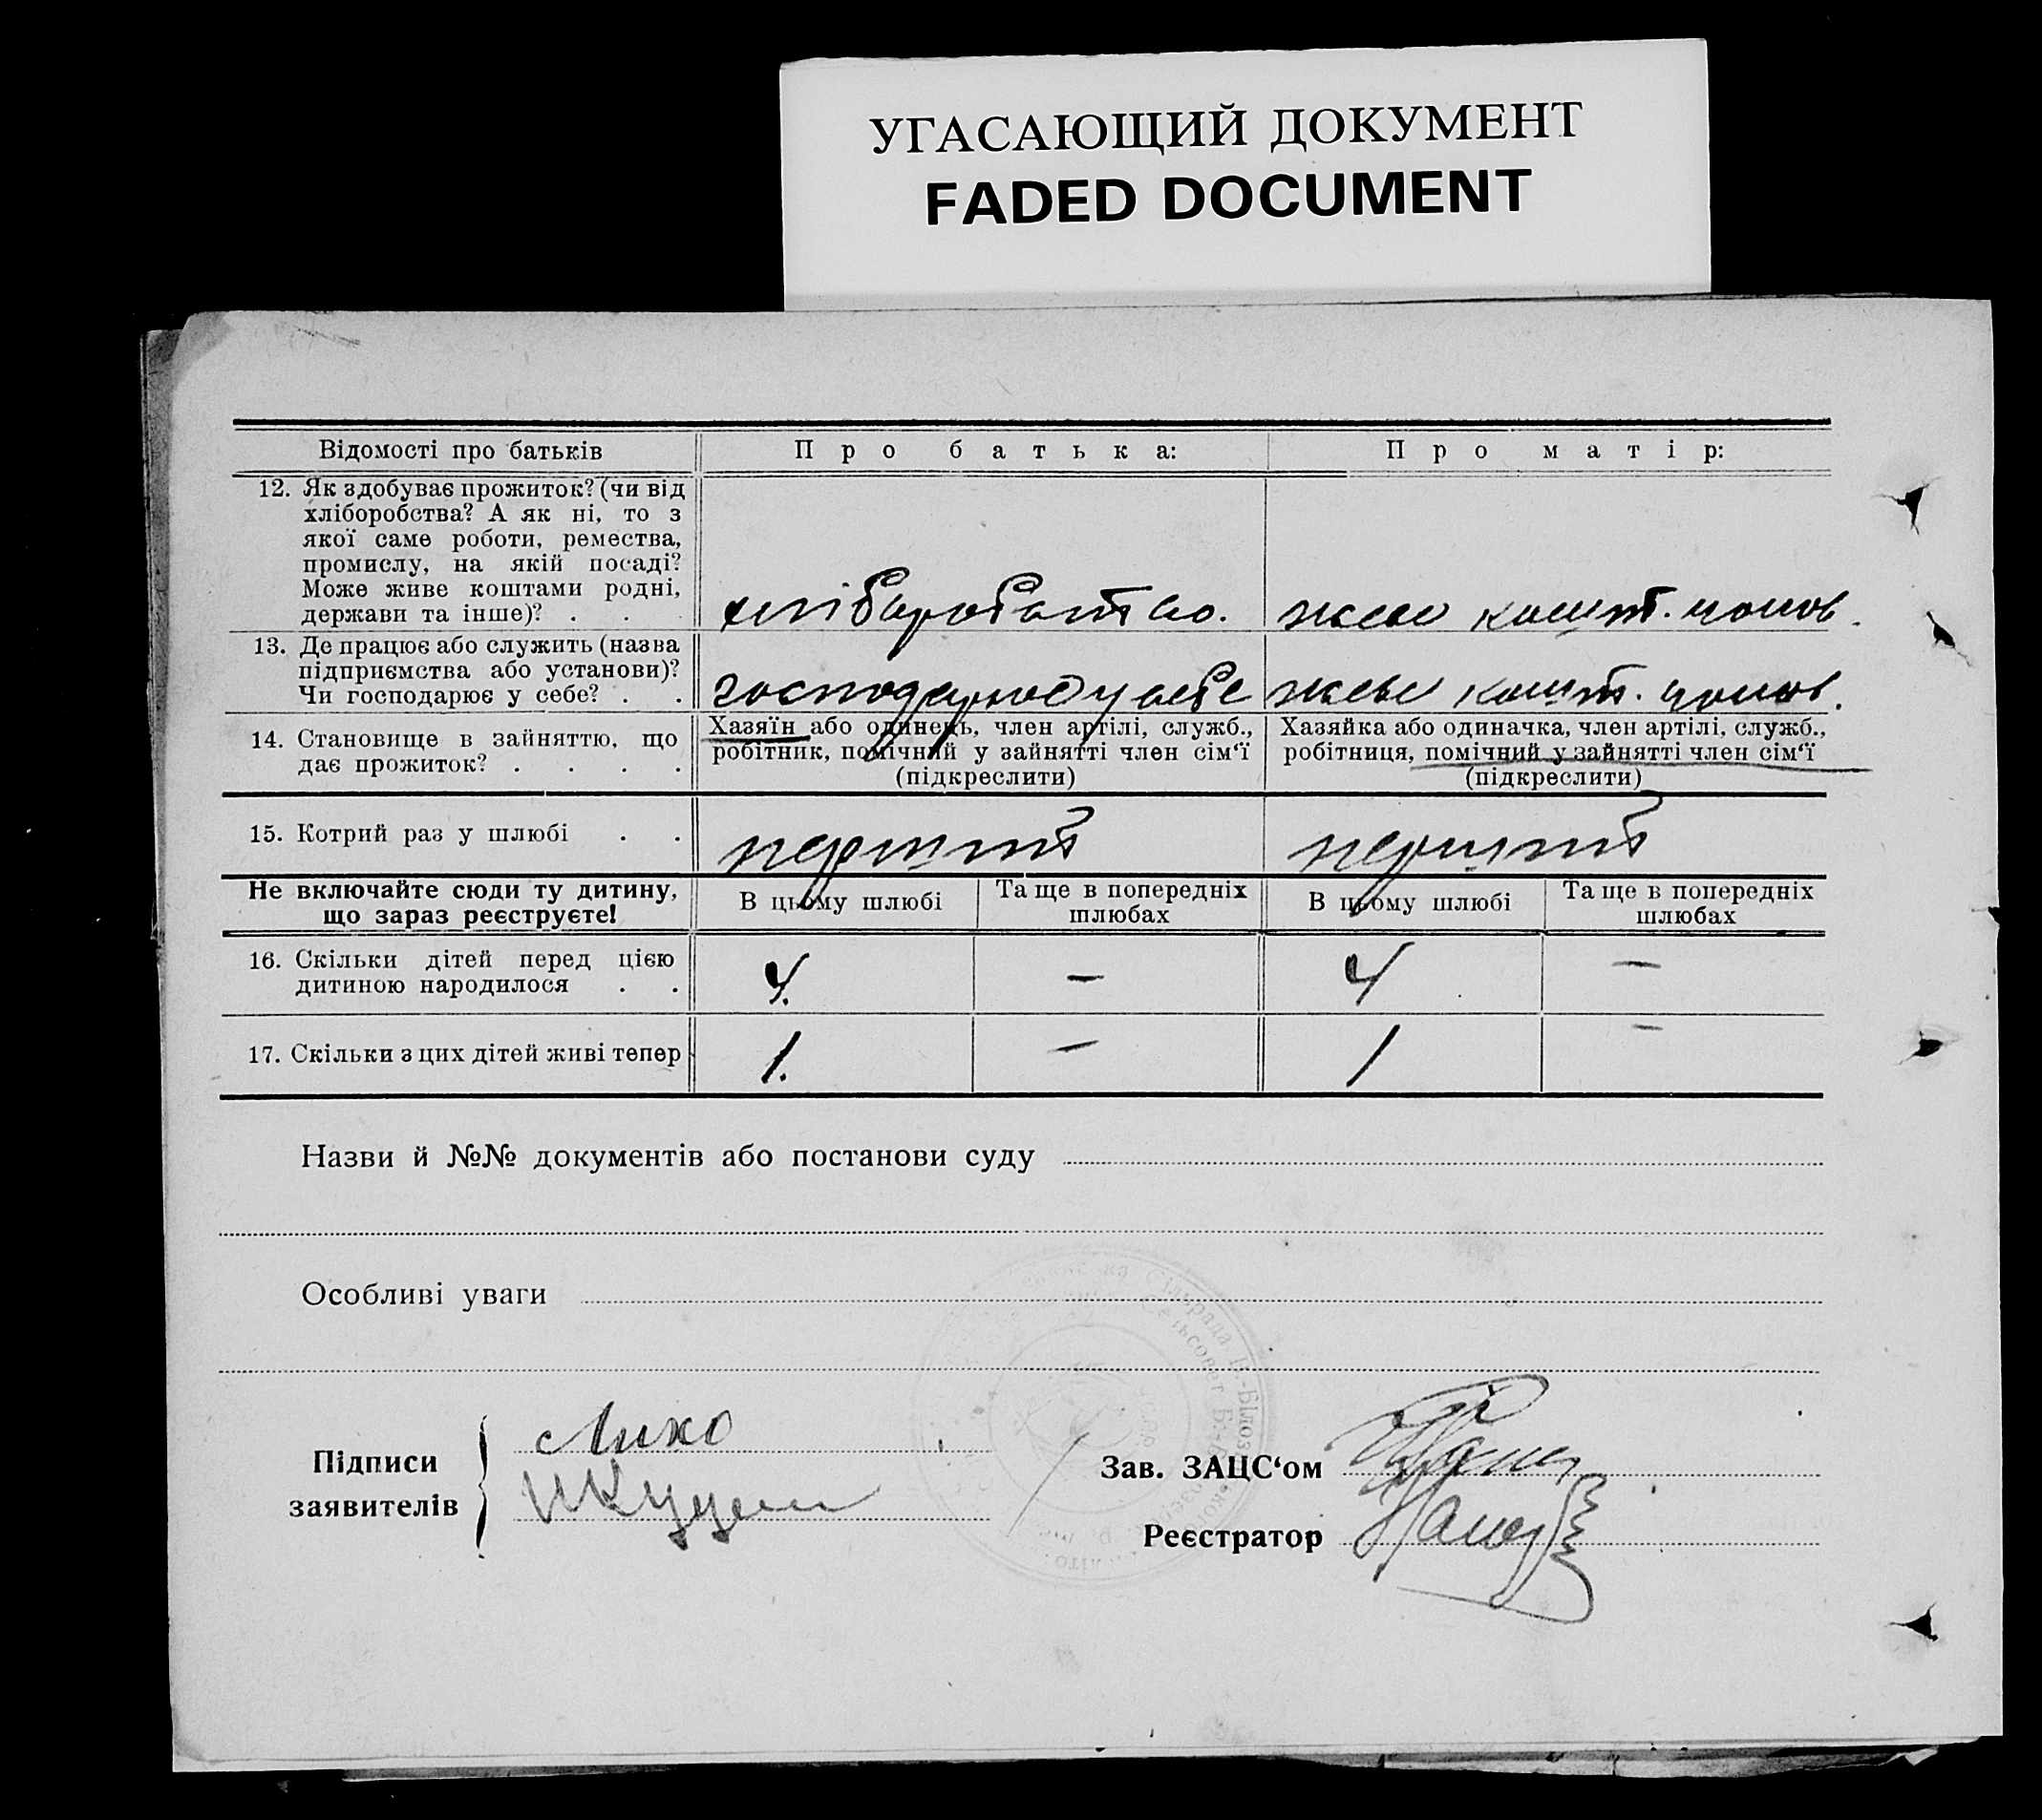 УГАСАЮЩИЙ ДОКУМЕНТ
FADED DOCUMENT
Відомості про батьків
Про батька:
Про матір:
12. Як здобуває прожиток? (чи від
хліборобства? А як ні, то з
якої саме роботи, ремества,
промислу, на якій посаді?
Може живе коштами родні,
держави та інше)? . . .
хліборобство.
живе кошт. чолов.
13. Де працює або служить (назва
підприємства або установи)?
Чи господарює у себе? . .
господарює у себе
живе кошт. чолов.
14. Становище в зайняттю, що
дає прожиток? . . . .
Хазяїн або одинець, член артілі, служб.,
робітник, помічний у зайнятті член сім‘ї
(підкреслити)
Хазяйка або одиначка, член артілі, служб.,
робітниця, помічний у зайнятті член сім‘ї
(підкреслити)
15. Котрий раз у шлюбі . .
перший
перший
Не включайте сюди ту дитину,
що зараз реєструєте!
В цьому шлюбі
Та ще в попередніх
шлюбах
В цьому шлюбі
Та ще в попередніх
шлюбах
16. Скільки дітей перед цією
дитиною народилося . .
4. – 4 –
17. Скільки з цих дітей живі тепер
1. – 1 –
Назви й №№ документів або постанови суду
Особливі уваги
Підписи
заявителів
Лихо
Зав. ЗАЦС‘ом
Реєстратор